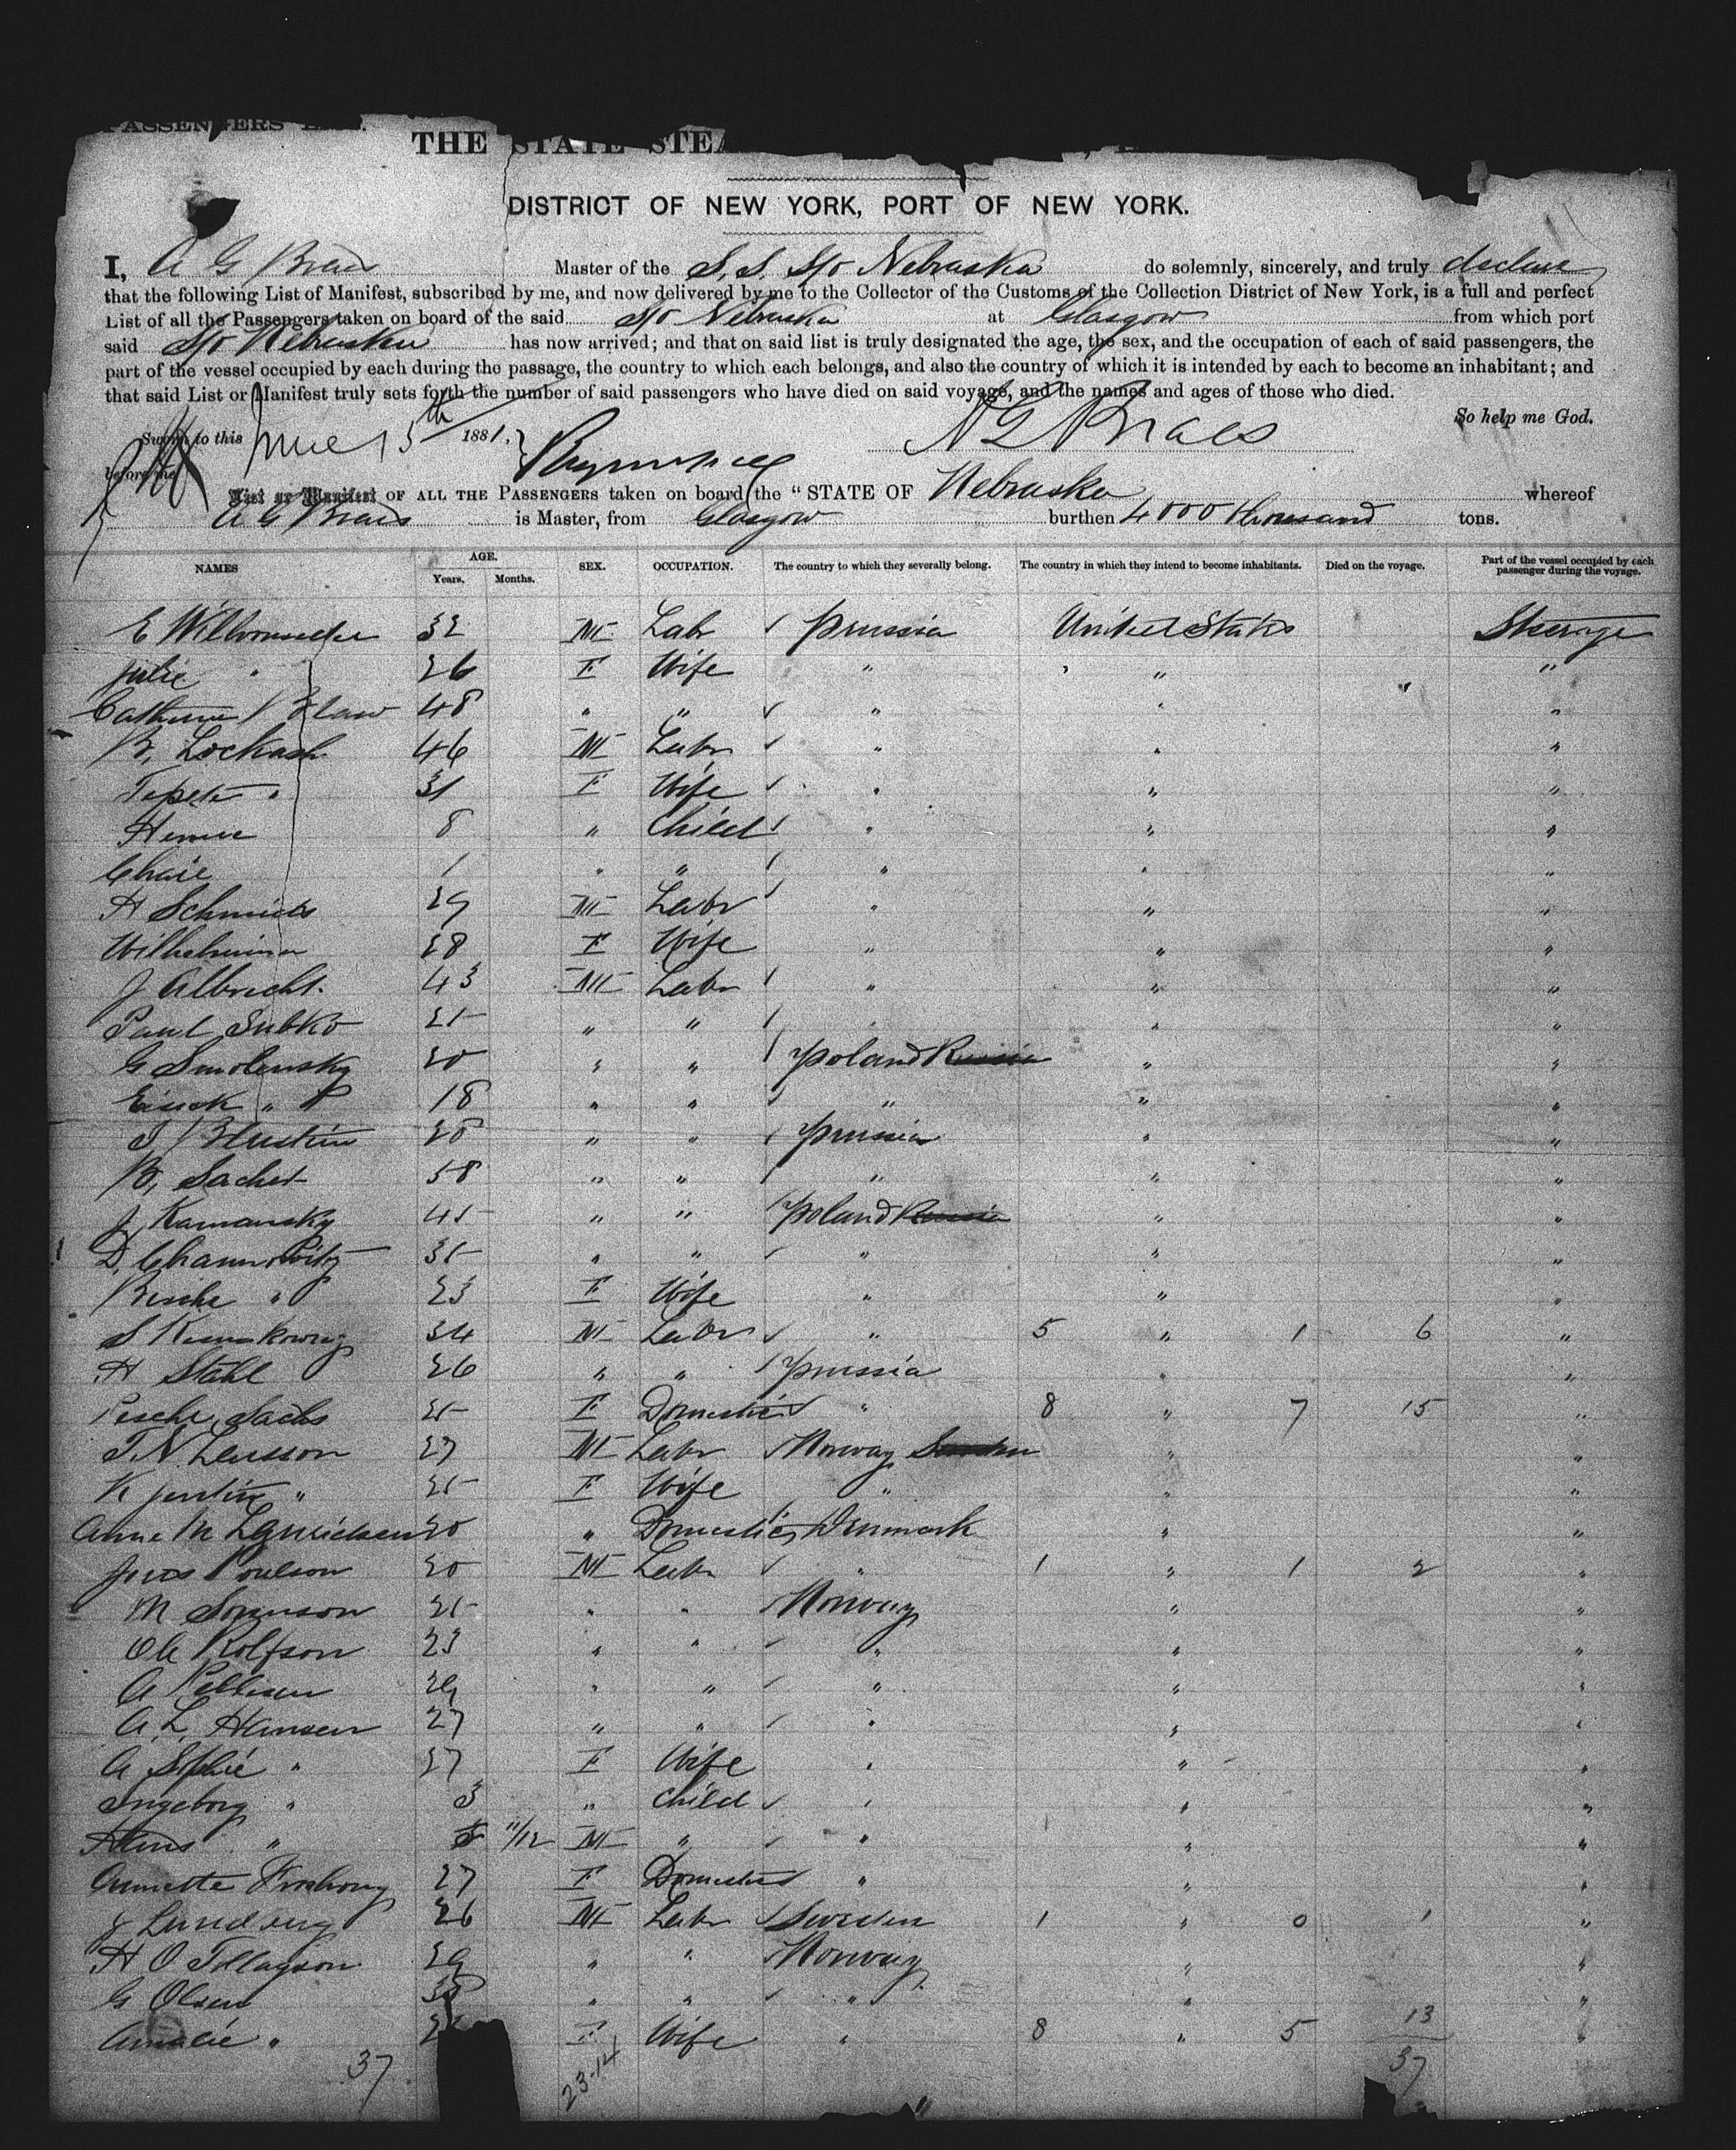 PASSENGERS
THE STATE STEA
DISTRICT OF NEW YORK, PORT OF NEW YORK.
I, A G Braes Master of the S.S. S/o Nebraska do solemnly, sincerely, and truly declare
that the following List of Manifest, subscribed by me, and now delivered by me to the Collector of the Customs of the Collection District of New York, is a full and perfect
List of all the Passengers taken on board of the said S/o Nebraska at Glasgow from which port
said S/o Nebraska has now arrived; and that on said list is truly designated the age, the sex, and the occupation of each of said passengers, the
part of the vessel occupied by each during the passage, the country to which each belongs, and also the country of which it is intended by each to become an inhabitant; and
that said List or Manifest truly sets forth the number of said passengers who have died on said voyage, and the names and ages of those who died.
So help me God.
Sworn to this June 15th 1881, A G Braes
before me
List or Manifest OF ALL THE PASSENGERS taken on board the "STATE OF Nebraska whereof
A G Braes is Master, from Glasgow burthen 4000 thousand tons.
NAMES AGE. Years. Months. SEX. OCCUPATION. The country to which they severally belong. The country in which they intend to become inhabitants. Died on the voyage. Part of the vessel occupied by each passenger during the voyage.
E 32 M Labr Prussia United States Steerage
Julie " 26 F Wife " " "
Catherine 48 " " " " "
B, Lockash 46 M Labr " " "
" 31 F Wife " " "
8 " Child " " "
Chaie 1 " " " " "
H Schmids 29 M Labr " " "
Wilhelmina 28 F Wife " " "
J Albrecht. 43 M Labr " " "
Paul Subko 25 " " " " "
G Smolensky 20 " " Poland Russia " "
" 18 " " " " "
28 " " Prussia " "
B, Sachs 58 " " " " "
J Kamansky 45 " " Poland Russia " "
D. 35 " " " " "
" 23 F Wife " " "
S 34 M Labr " 5 " 1 6 "
H Stahl 26 " " Prussia " "
Pesche Sachs 25 F Domestic " 8 " 7 15 "
T. N. Larsson 27 M Labr Norway Sweden " "
" 25 F Wife " " "
Anne M Lauridsen 20 " Domestic Denmark " "
Jens Poulson 20 M Labr " 1 " 1 2 "
M Sorenson 25 " " Norway " "
Ole Rolfson 23 " " " " "
A 29 " " " " "
A. L. Hansen 27 " " " " "
A Sophie " 27 F Wife " " "
Ingeborg " 3 " Child " " "
Hans " 11/12 M " " " "
Annette 27 F Domestic " " "
J Lundberg 26 M Labr Sweden 1 " 0 1 "
H O Tollagson 29 " " Norway " "
G Olsen " " " " "
Amalie " F Wife " 8 " 5 13 "
37 23-14 37